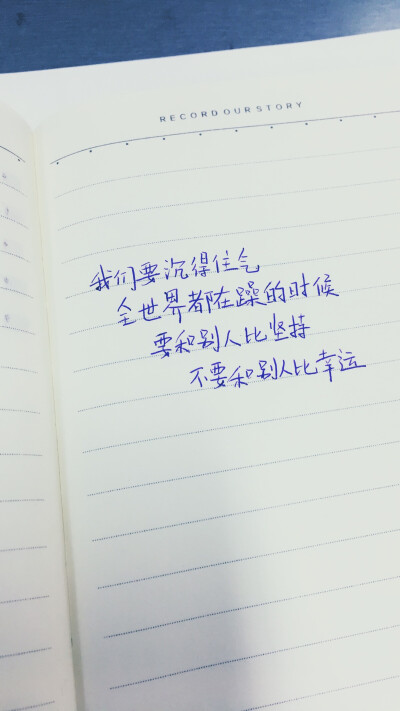 RECORD OUR STORY
我们要沉得住气
全世界都在躁的时候
要和别人比坚持
不要和别人比幸运